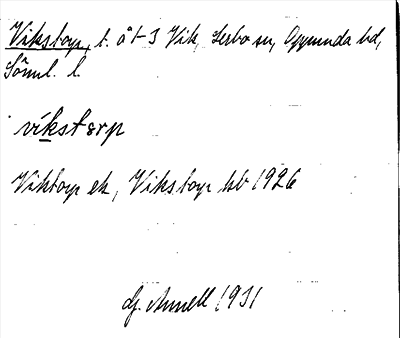 Vikstorp, t. å 1-3 Vik, Lerbo sn, Oppunda hd,
Söml. l.
víkstorp
Viktorp ek, Vikstorp kb 1926
Gf. Annell 1931